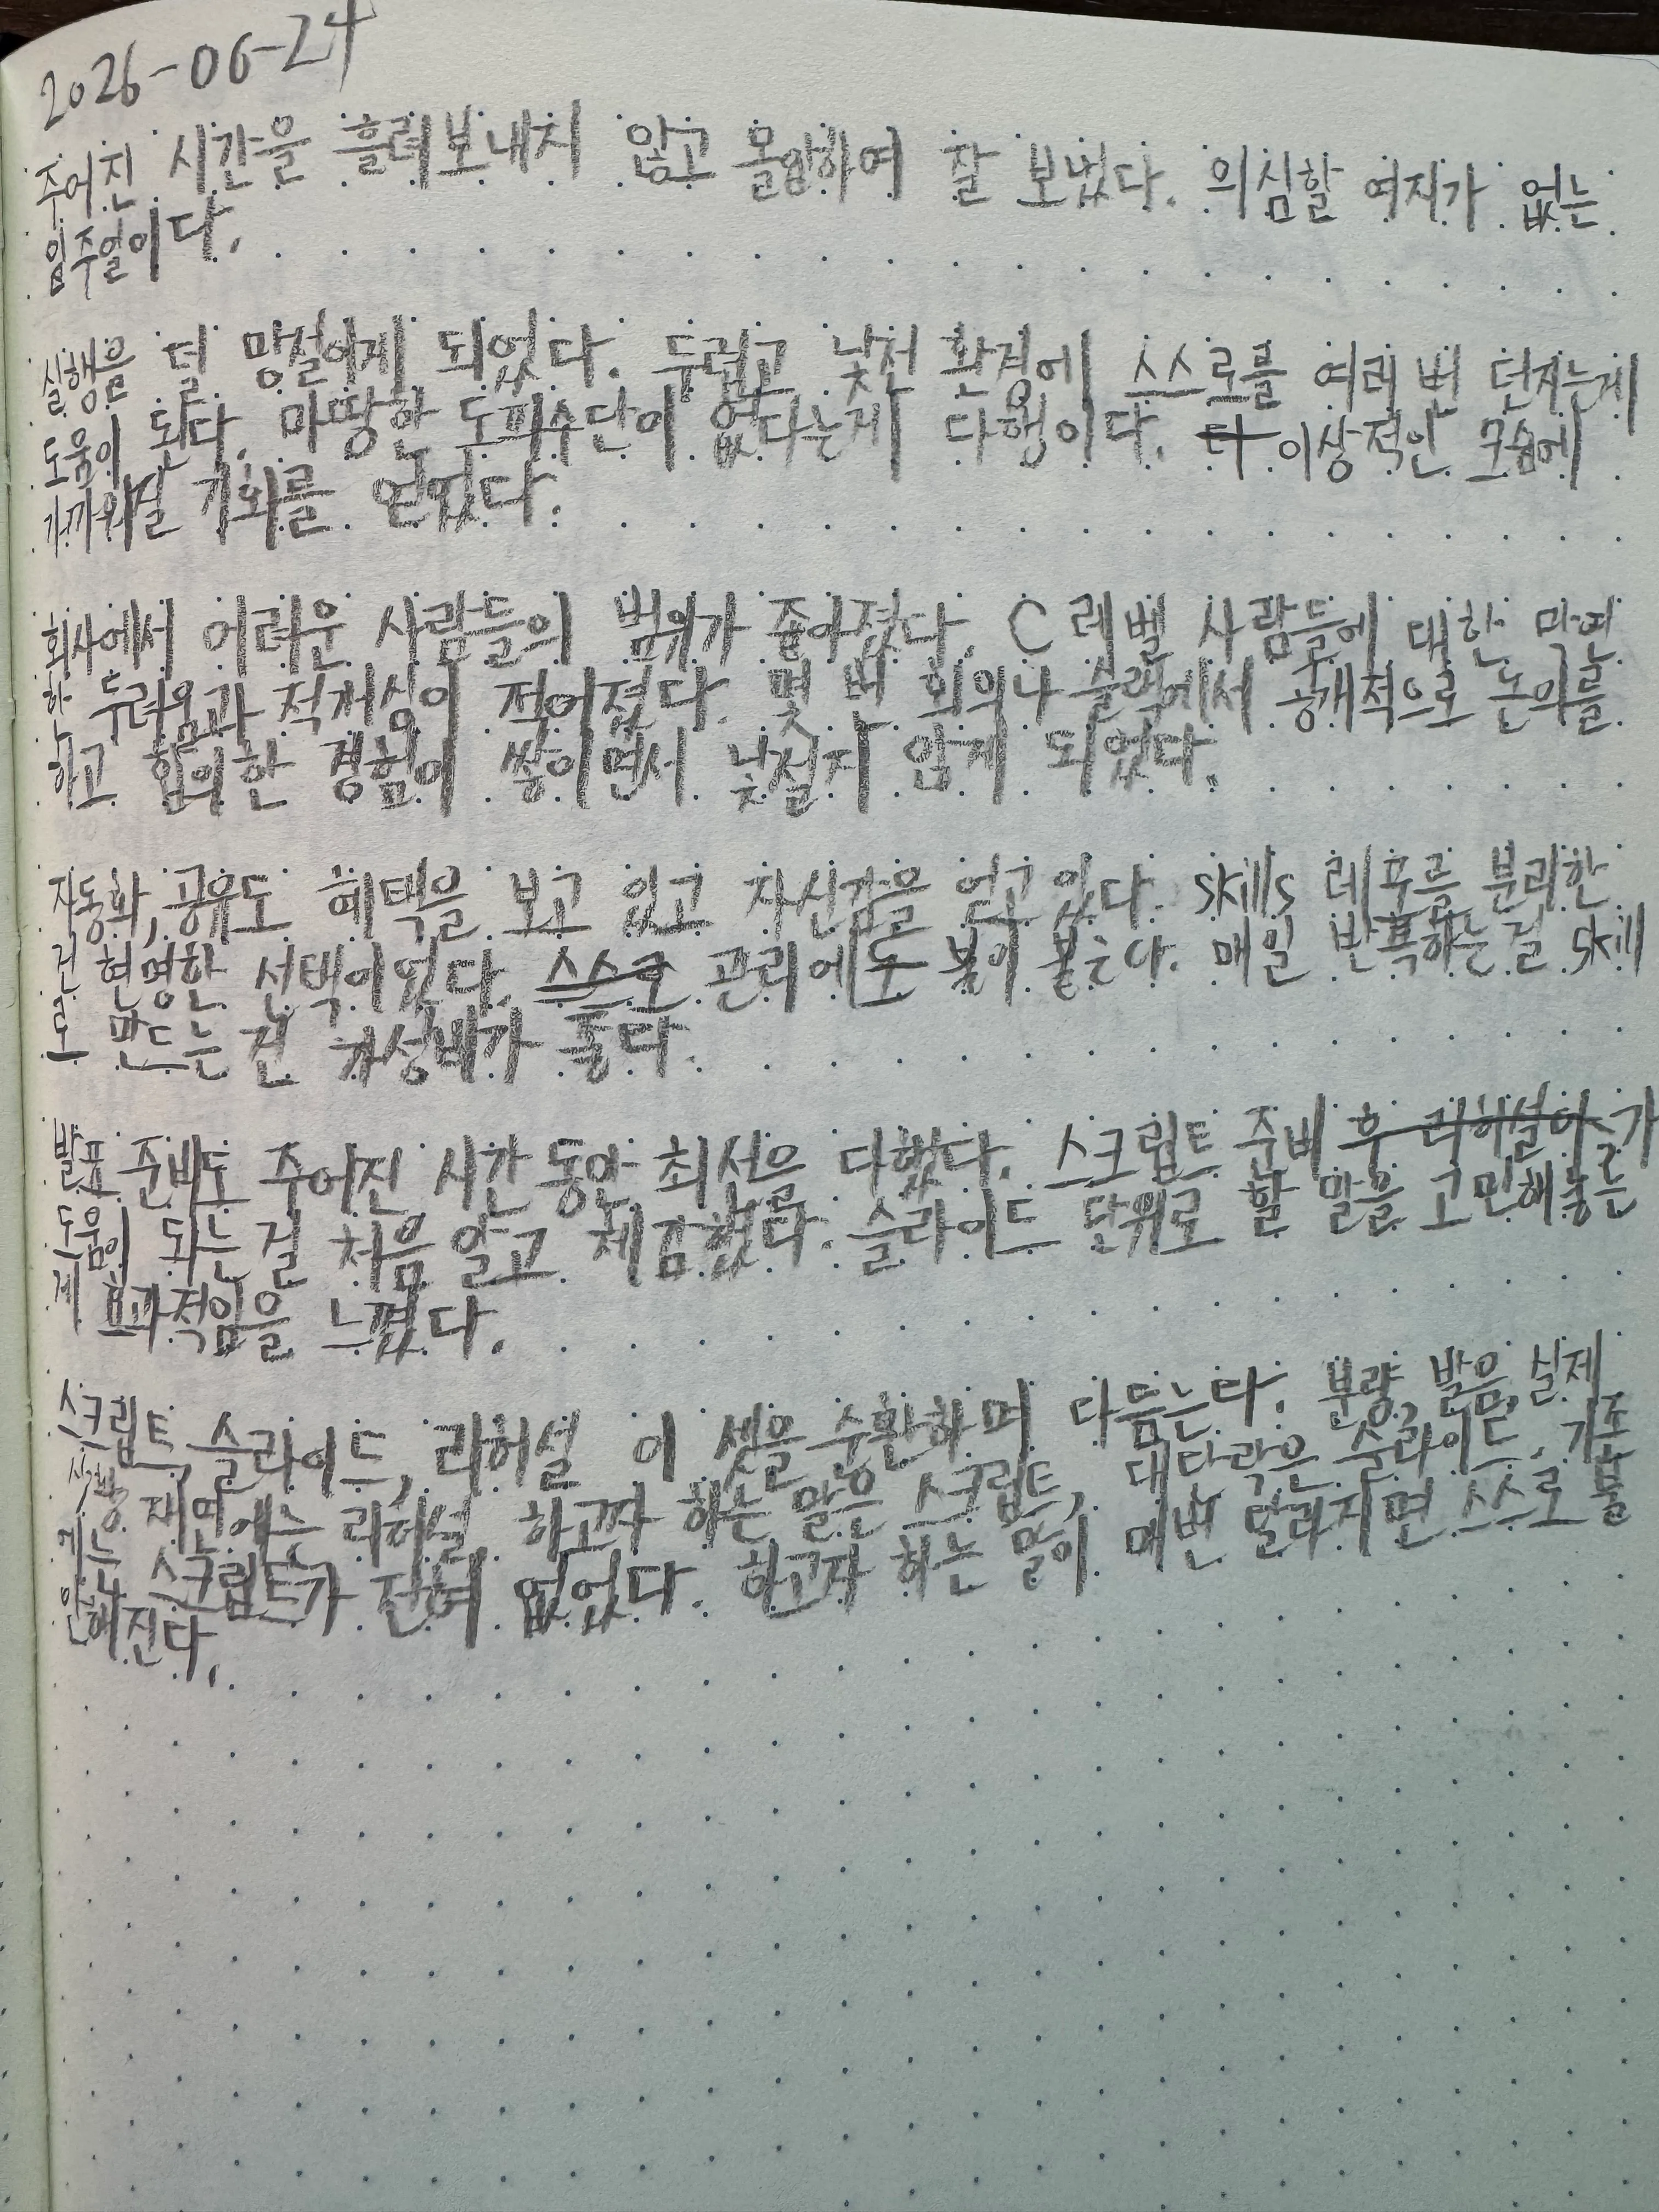 2026-06-24
주어진 시간을 흘려보내지 않고 몰입하여 잘 보냈다. 의심할 여지가 없는
일주일이다.
실행을 덜 망설이게 되었다. 두렵고 낯선 환경에 스스로를 여러 번 던지는게
도움이 된다. 마땅한 도피수단이 없다는게 다행이다. 더 이상적인 모습에
가까워질 기회를 얻었다.
회사에서 어려운 사람들의 범위가 좁아졌다. C레벨 사람들에 대한 막연
한 두려움과 적개심이 적어졌다. 몇 번 회의나 슬랙에서 공개적으로 논의를
하고 합의한 경험이 쌓이면서 낯설지 않게 되었다.
자동화, 공유도 혜택을 보고 있고 자신감을 얻고 있다. skills 레포를 분리한
건 현명한 선택이었다. 스스로 관리에도 불이 붙는다. 매일 반복하는 걸 skill
로 만드는 건 가성비가 좋다.
발표 준비도 주어진 시간 동안 최선을 다했다. 스크립트 준비 후 리허설이 가
도움이 되는 걸 처음 알고 체감했다. 슬라이드 단위로 할 말을 고민해놓는
게 효과적임을 느꼈다.
스크립트, 슬라이드, 리허설 이 셋을 순환하며 다듬는다. 분량, 발음, 실제
시행 재현에는 리허설, 하고자 하는 말은 스크립트, 대다락은 슬라이드. 기존
에는 스크립트가 전혀 없었다. 하고자 하는 말이 매번 달라지면 스스로 불
안해진다.